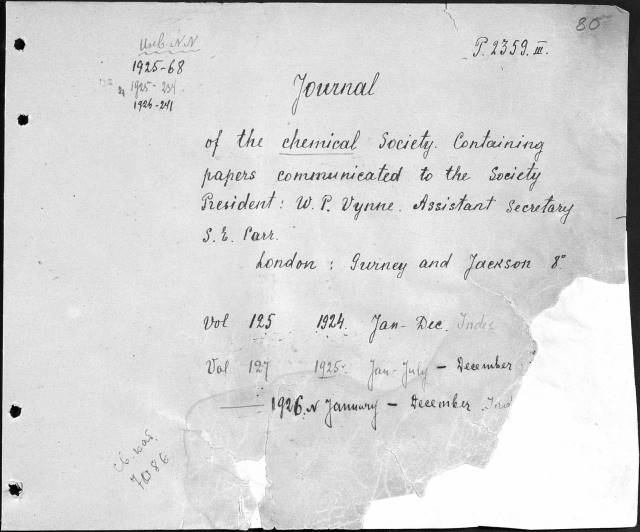 80
P. 2359. III.
Инв. N.N
1925-68
1925-234
1926-241
Journal
of the chemical Society. Containing
papers communicated to the Society
President: W. P. Vynne. Assistant Secretary
S. E. Carr.
London : Gurney and Jackson 8°
Vol 125 1924. Jan-Dec. Index
Vol 127 1925. Jan-July - December
1926. N January - December
7086